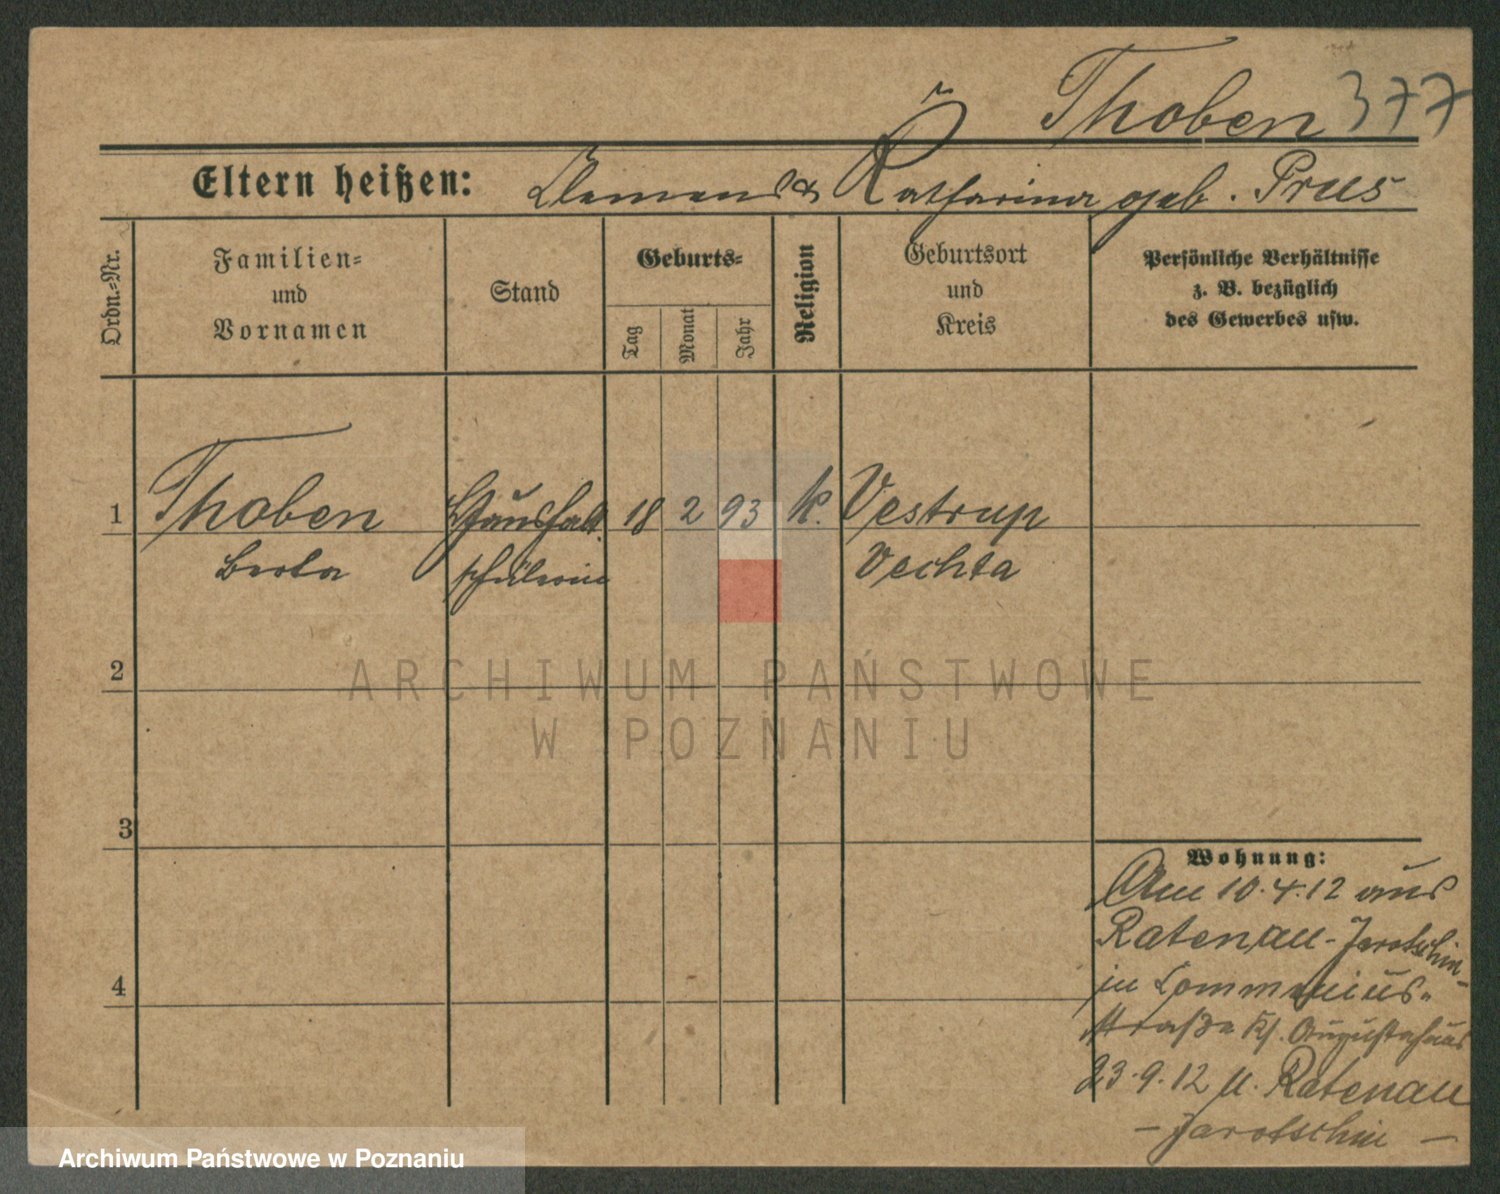 Thoben 377
Eltern heißen: Clemens & Katharina geb. Prus
Ordn.-Nr.
Familien-
und
Vornamen
Stand
Geburts-
Tag
Monat
Jahr
Religion
Geburtsort
und
Kreis
Persönliche Verhältnisse
z. B. bezüglich
des Gewerbes usw.
1 Thoben Haushalt. 18 2 93 k. Vestrup
schülerin Vechta
2
ARCHIWUM PAŃSTWOWE
W POZNANIU
3
Wohnung:
Am 10.4.12 aus
Ratenau-Jarotschin
in Commenius-
straße Augustahaus
4
23.9.12 n. Ratenau
- Jarotschin -
Archiwum Państwowe w Poznaniu